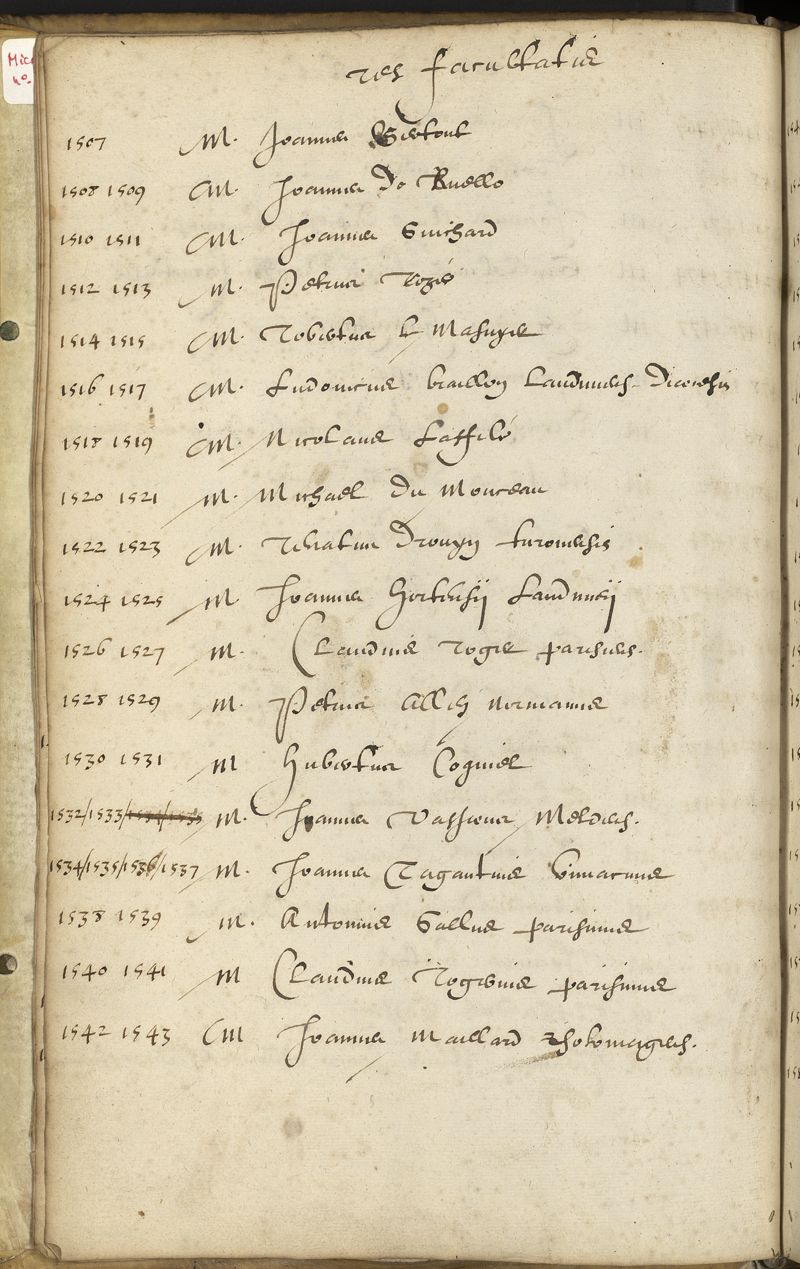 Mic
no.
res facultatis
1507 M. Joannes Bertoul
1508 1509 M. Joannes De Ruello
1510 1511 M. Joannes Guichard
1512 1513 M. Petrus Rozé
1514 1515 M. Robertus le Masuyer
1516 1517 M. Ludovicus braillon Laudunens. Diocesis
1518 1519 M. Nicolaus Laffilé
1520 1521 M. Michael Du Monceau
1522 1523 M. Renatus Drouyn turonensis
1524 1525 M Joannes Hortensij Laudunensij
1526 1527 M. Claudius Roger parisiens.
1528 1529 M. Petrus Allen normannus
1530 1531 M Hubertus Coquiel
1532/1533/1534/1535 M. Joannes Vasseus Meldens.
1534/1535/1536/1537 M. Joannes Tagautius Vimacuus
1538 1539 M. Antonius Gallus parisinus
1540 1541 M Claudius Rogerius parisinus
1542 1543 M Joannes Maillard rhotomagens.